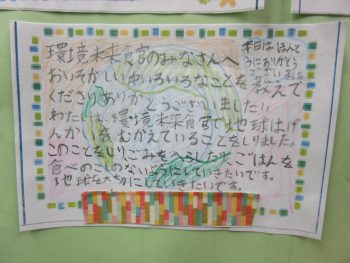 環境未来館のみなさんへ
本日はほんと
うにありがとう
ございました
おいそがしい中いろいろなことを教えて
くださりありがとうございました。
わたしは、環境未来館で地球はげ
んかいをむかえていることをしりました。
このことをしりごみをへらしたり、ごはんを
食べのこしのないようにしていきたいです。
地球を大切にしていきたいです。